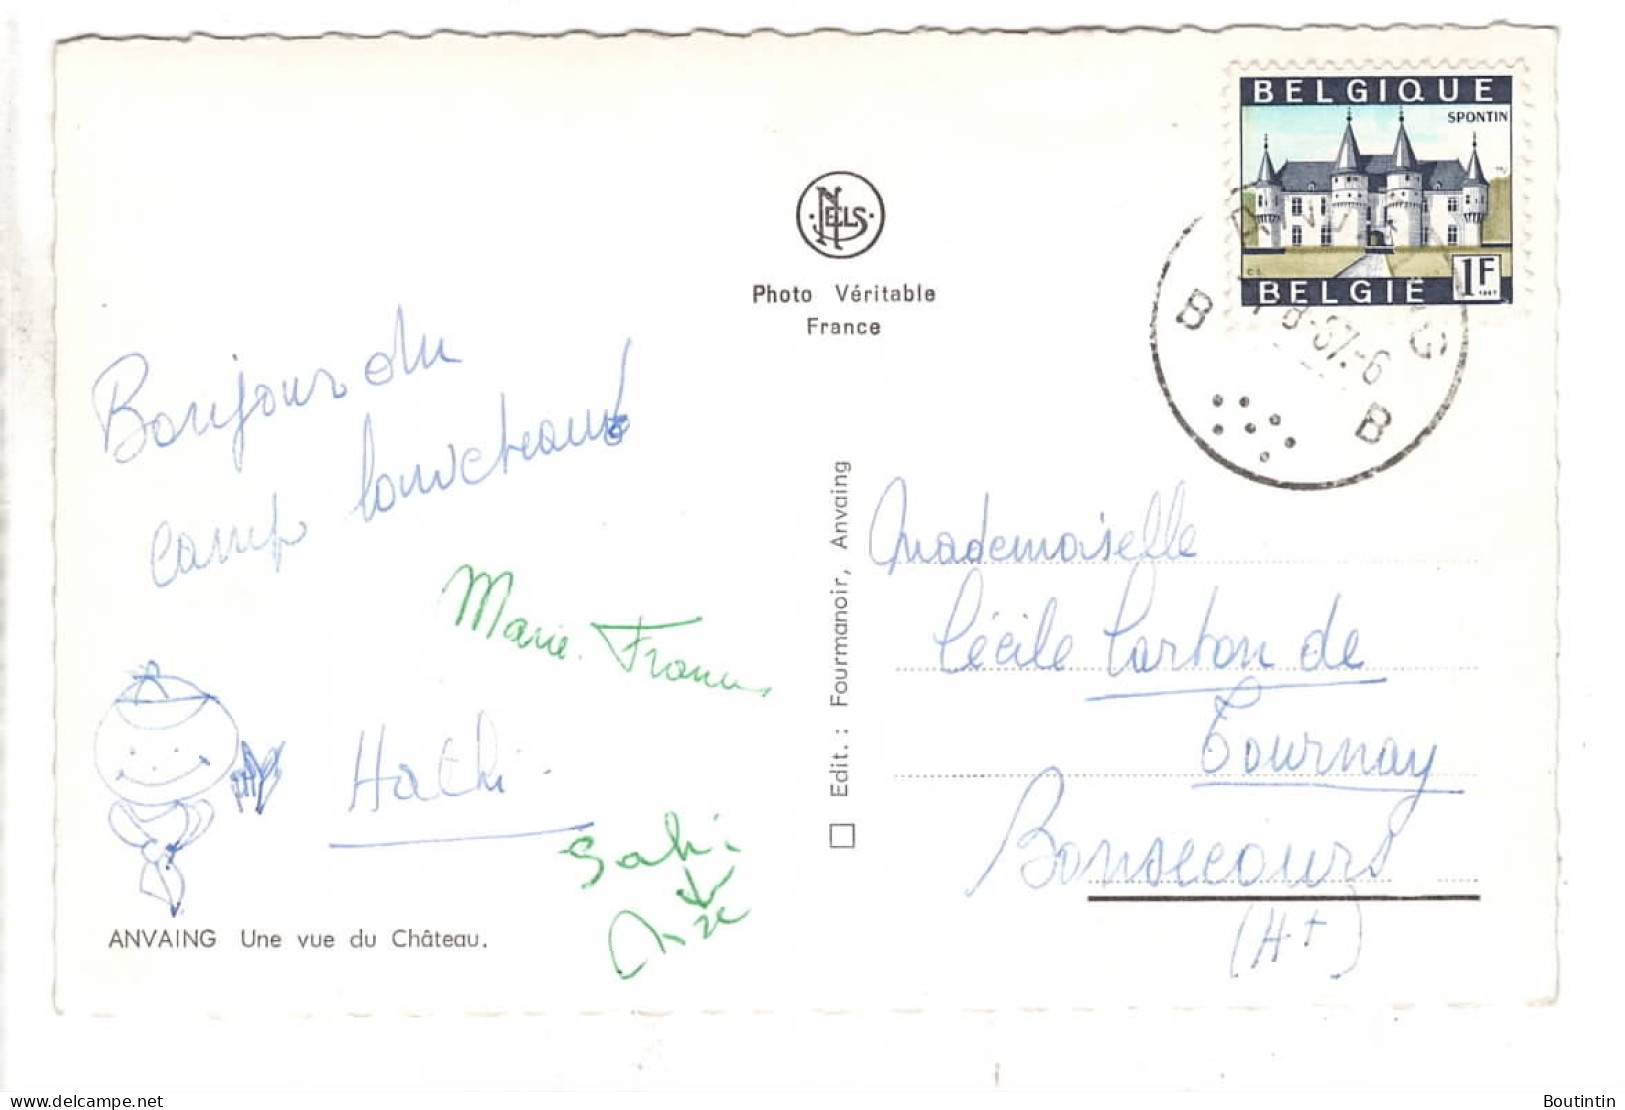 BELGIQUE
SPONTIN
1F
BELGIË
NELS
Photo Véritable
France
B B
Bonjour du
camp louveteaux!
Marie. France
Hathi.
Sahi
ANVAING Une vue du Château.
Edit.: Fourmanoir, Anvaing
Mademoiselle
Cécile Carton de
Tournay
Bonsecours
(Ht)
www.delcampe.net
Boutintin